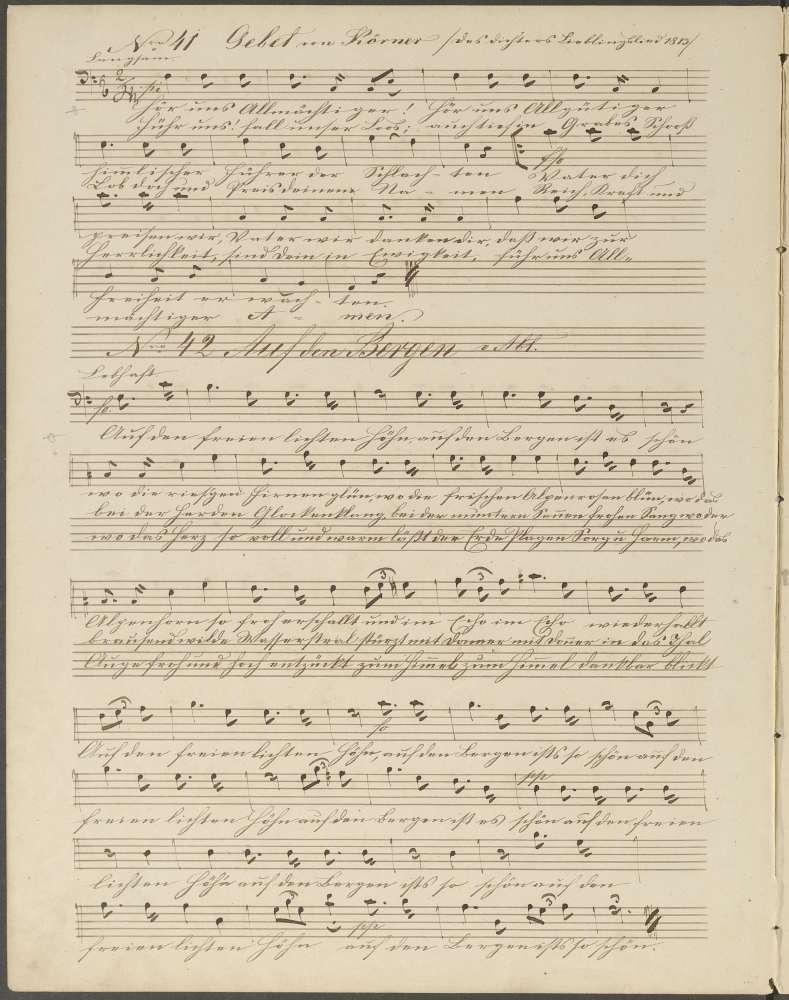 Nro 41 Gebet von Körner /des Dichters Lieblingslied 1813/
Langsam.
Hör uns Allmächtiger! Hör uns Allgütiger
Führ uns! fall unser Loos; auch tief in Grabes Schooß
himlischer Führer der Schlach- ten Vater dich
Lob doch und Preis deinem Na - men Reich, Kraft und
preisen wir, Vater wir danken dir, daß wir zur
Herrlichkeit, sind dein in Ewigkeit, führ uns All-
Freiheit er wach - ten.
mächtiger A - men.
Nro 42 Auf den Bergen v. Abt.
Lebhaft
Auf den freien lichten Höhn, auf den Bergen ist es schön
wo die ries'gen Firnen glün, wo die frischen Alpenrosen blün, wo das
bei der Herden Glockenklang, bei der muntern Sennen frohen Sang wo der
wo das Herz so voll und warm läßt der Erde Plagen Sorg u Harm, wo das
Alpenhorn so froh erschallt und im Echo im Echo wiederhallt
brausend wilde Wasserstral stürzt mit Donner mit Donner in das Thal
Auge froh und hoch entzückt zum Himel zum Himmel dankbar blickt
Auf den freien lichten Höhn, auf den Bergen ists so schön auf den
freien lichten Höhn auf den Bergen ist es schön auf den freien
lichten Höhn auf den Bergen ists so schön auf den
freien lichten Höhn auf den Bergen ists so schön.